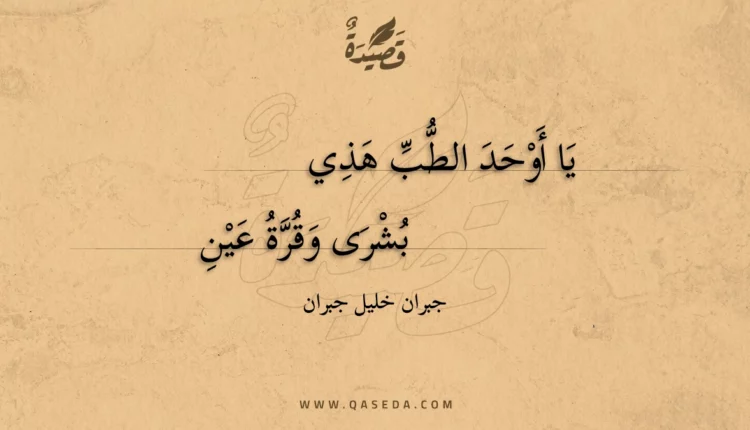 قَصِيدَةٌ
يَا أَوْحَدَ الطُّبِّ هَذِي
بُشْرَى وَقُرَّةُ عَيْنِ
جبران خليل جبران
WWW.QASEDA.COM